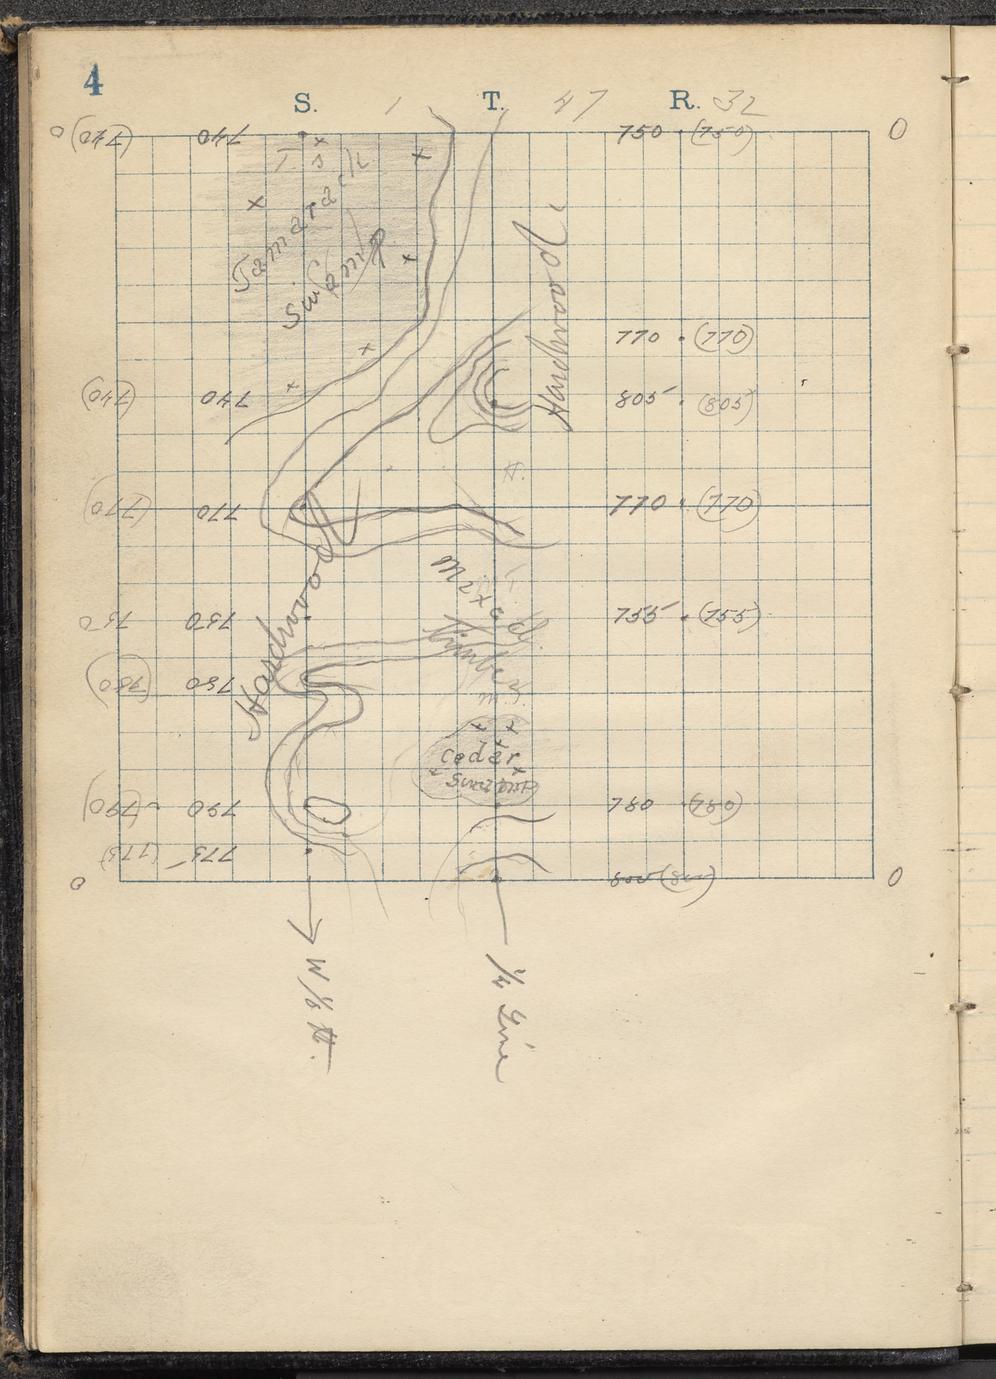 4
S. 1 T. 47 R. 32
0 (740) 740 750 (750) 0
T. S.
Tamarack
Swamp
Hardwood
770 (770)
(740) 740 805 (805)
H.
(770) 770 770 (770)
Hardwood
Mixed
Timber
750 750 755 (755)
(780) 780
M.T.
Cedar
Swamp
(790) 790 780 (780)
(775) 775
0 800 (800) 0
W/8 H.
1/4 Line